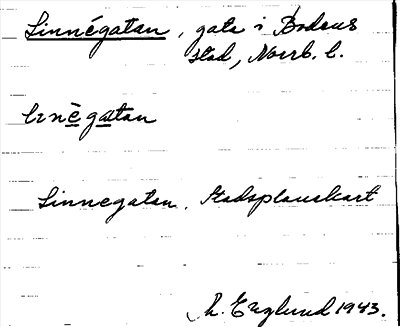 Linnégatan, gata i Bodens
stad, Norrb. l.
linègatan
Linnegatan. Stadsplanekart
M. Englund 1943.